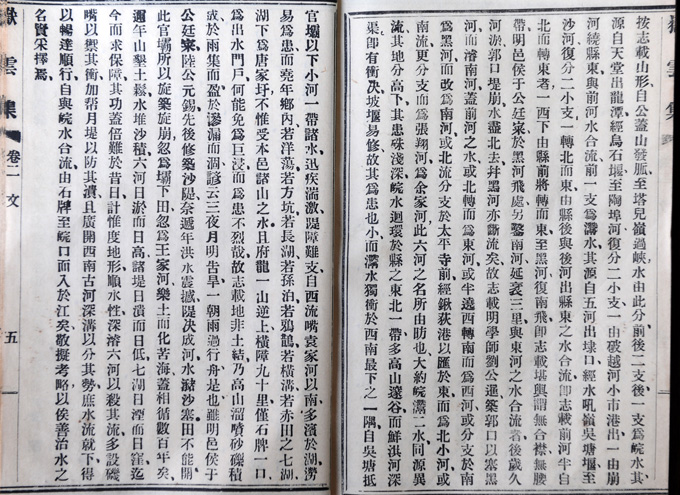 按志載山形自公蓋山發脈至塔兒嶺過峽水由此分前後二支後一支爲皖水其
源自天堂出龍潭經烏石堰至陶埠河復分二小支一由破越河小市港出一由崩
河繞縣東與前河水合流前一支爲潛水其源自五河出埭口經水吼嶺吳塘堰至
沙河復分二小支一轉北而東由縣後與後河出縣東之水合流卽志載前河半自
北而轉東者一西下由縣前將轉而東至黑河復南飛卽志載堪輿謂無合襟無腰
帶明邑侯于公廷寀於黑河飛處另鑿南河延袤三里與東河之水合流者後歲久
河淤郭口堤崩水盡北去并黑河亦斷流矣故志載明學師劉公進築郭口以塞黑
河而濬南河蓋前河之水或北轉而爲東河或半遶西轉南而爲西河或分支於南
爲黑河而改爲南河或北流分支於太平寺前經鍬荻港以匯於東而爲北小河或
南流更分支而爲張翔河爲余家河此六河之名所由昉也大約皖潛二水同源異
流其地分高下其患殊淺深皖水迴環於縣之東北一帶多高山邃谷而鮮淇河深
渠卽有衝決坡堰易修故其爲患也小而潛水獨衝於西南最下之一隅自吳塘抵
官壩以下小河一帶諸水迅疾湍激隄障難支自西流嘴袁家河以南多濱於湖澇
易爲患而堯年鄉內若洋蕩若方坑若長湖若孫泊若鴉鵲若橫溝若赤田之七湖
湖下爲唐家圩不惟受本邑諸山之水且府龍一山逆上橫障九十里僅石牌一口
爲出水門戶何能免爲巨浸而爲患不烈哉故志載地非土結乃高山溜噴砂礫積
或於雨集而盈於滲漏而涸諺云三夜月明告旱一朝雨過行舟是也雖明邑侯于
公廷寀陸公元錫先後修築沙隄奈遞年洪水震撼隄決成河水淤沙塞田不能開
此官壩所以旋築旋崩忽爲壩下田忽爲王家河樂土而化苦海蓋相循數百年矣
邇年山墾土鬆水堆沙積六河日淤而日高諸堤日潰而日低七湖日湮而日窪迄
今而求保障其功蓋倍難於昔日計惟度地形順水性深濬六河以殺其流多設磯
嘴以禦其衝加幫月堤以防其潰且廣開西南古河深溝以分其勢庶水流就下得
以暢達順行自與皖水合流由石牌至皖口而入於江矣敢擬考略以俟善治水之
名賢采擇焉
嶽雲集 卷二 文 五